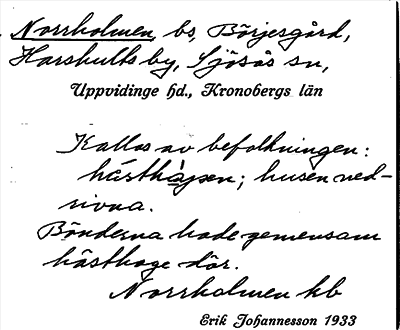 Norrholmen, bs, Börjesgård,
Harshults by, Sjösås sn,
Uppvidinge hd., Kronobergs län
Kallas av befolkningen:
hästhagen; husen ned-
rivna.
Bönderna hade gemensam
hästhage där.
Norrholmen kb
Erik Johannesson 1933